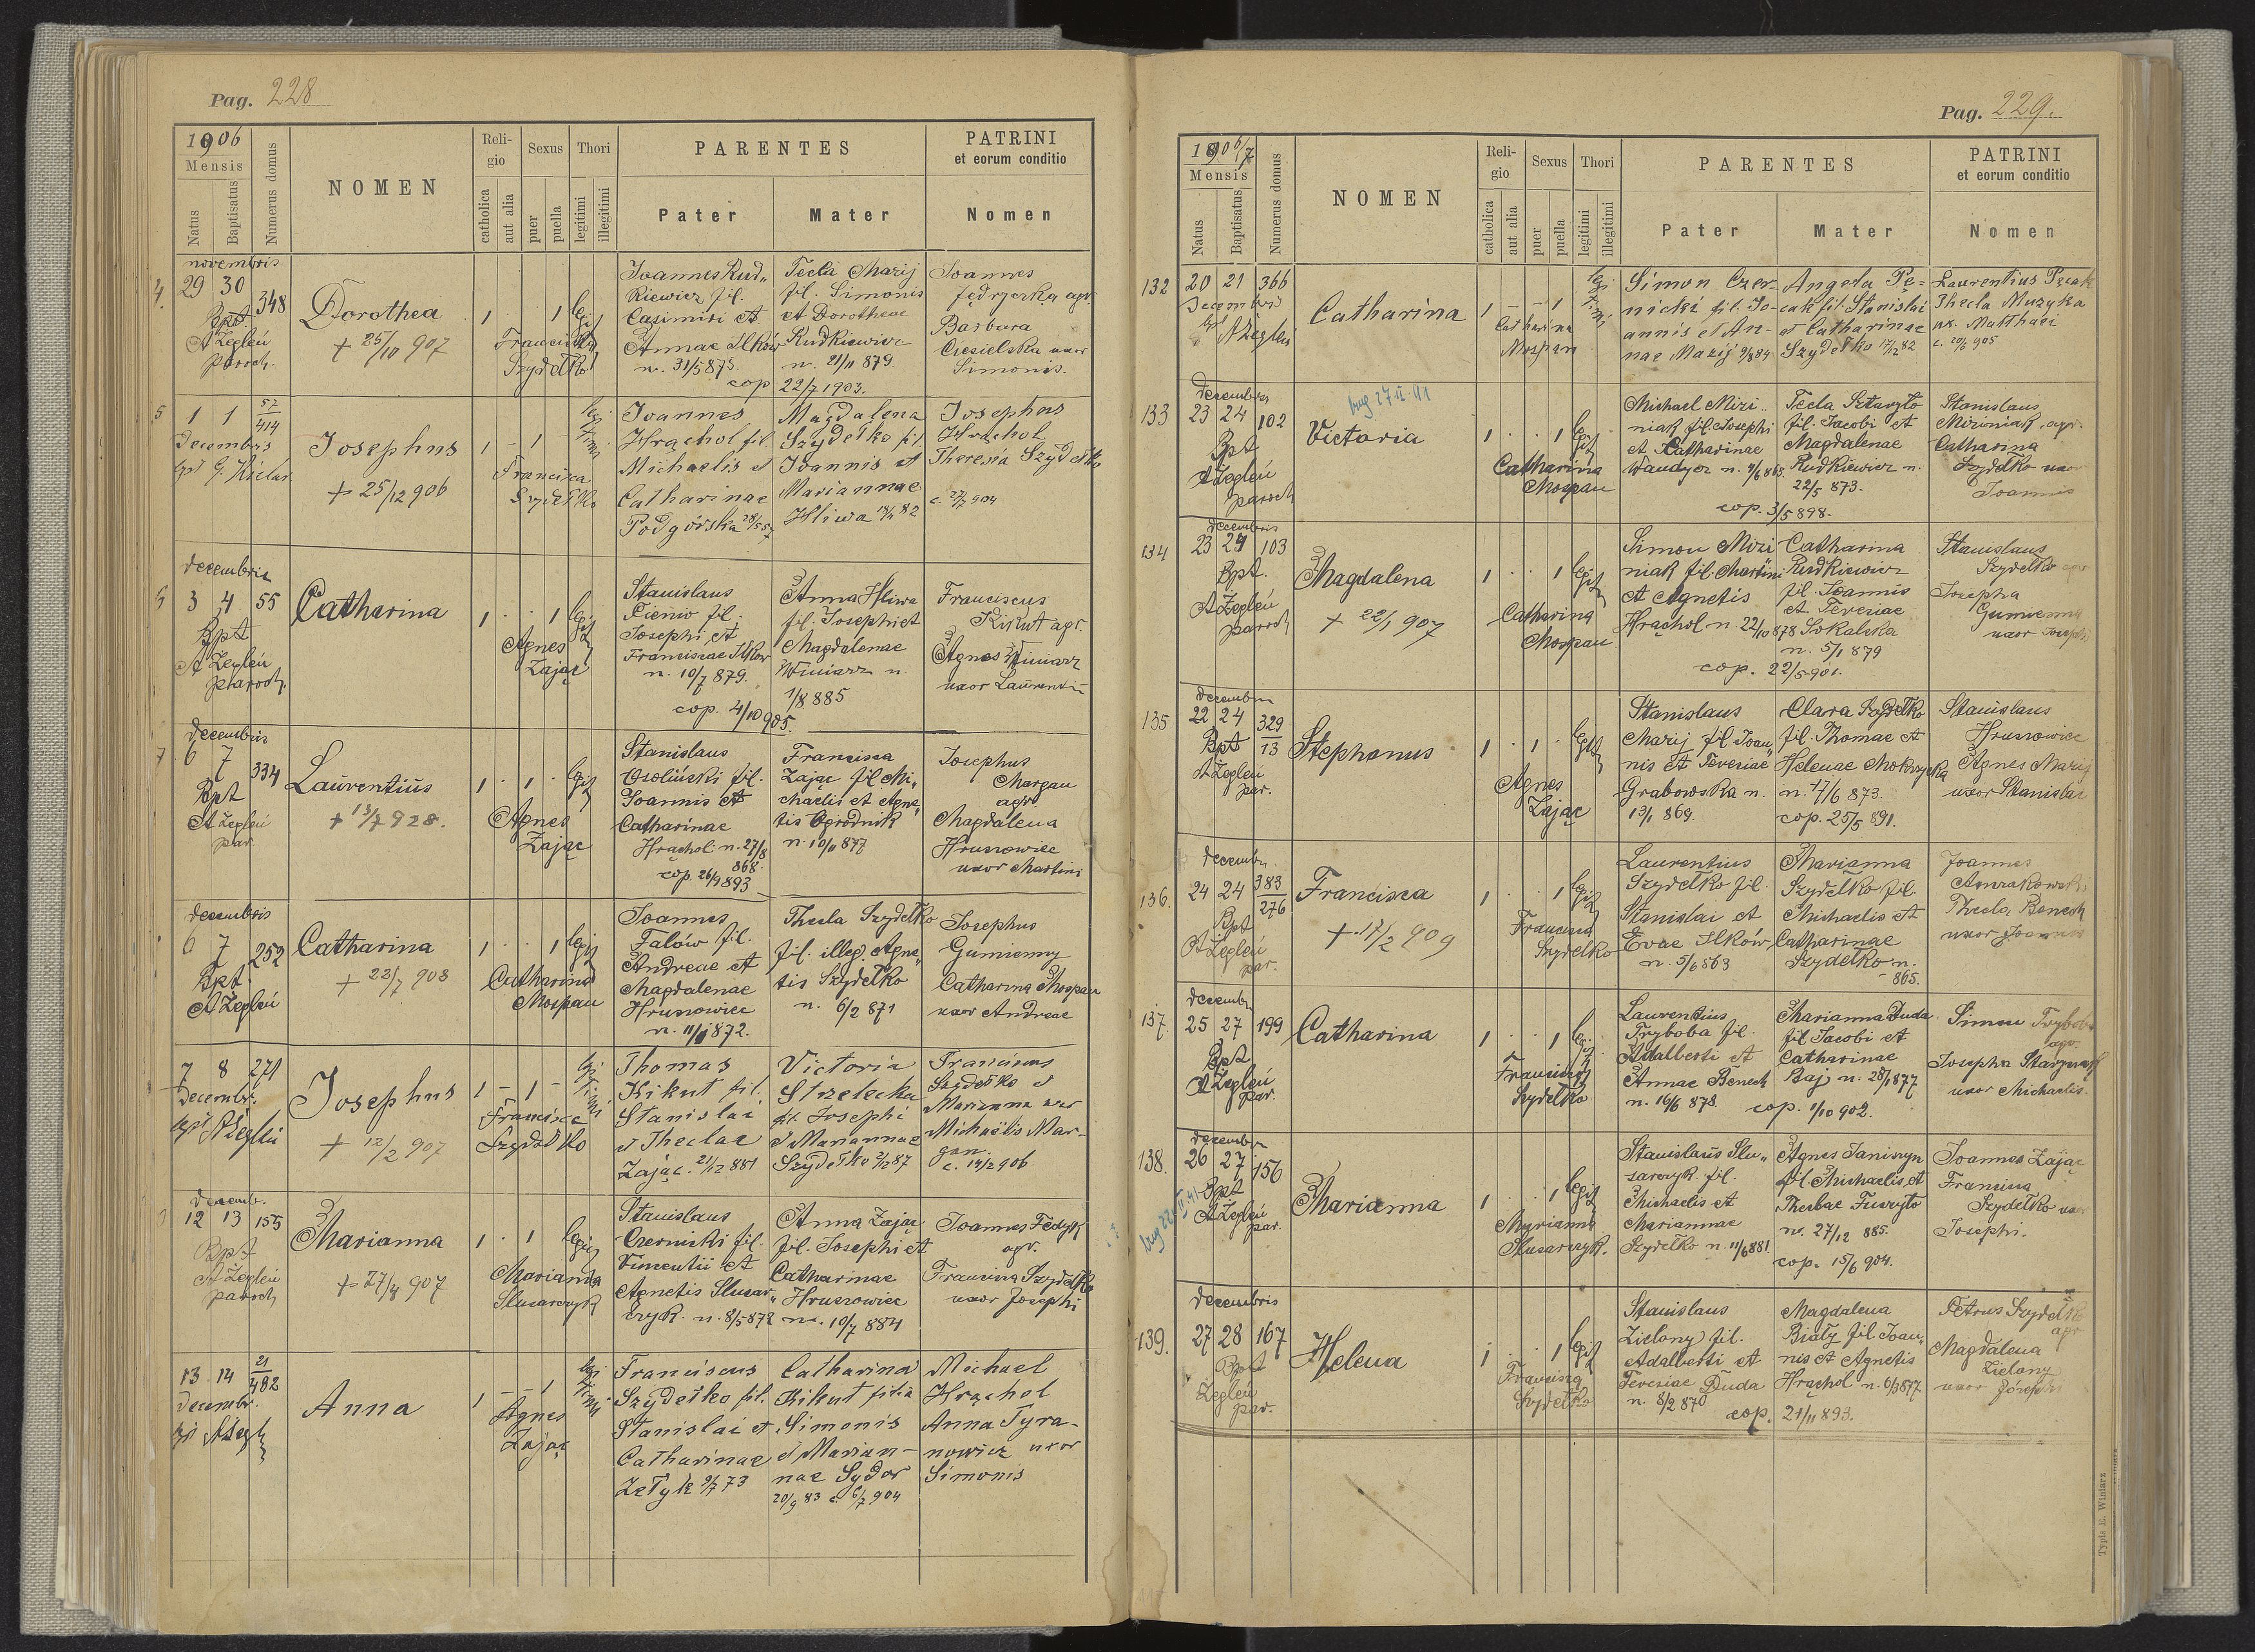 Pag. 228
1906
Mensis
Natus
Baptisatus
Numerus domus
NOMEN
Religio
catholica
aut alia
Sexus
puer
puella
Thori
legitimi
illegitimi
PARENTES
Pater
Mater
PATRINI
et eorum conditio
Nomen
4.
novembris
29 30 348
Bpt.
A Żegleń
paroch.
Dorothea
+ 25/10 907
1 . . 1 legit
Francisca
Szydełko
Joannes Rud„
kiewicz fil.
Casimiri et
Annae Ilków
n. 31/5 873.
Tecla Marij
fil. Simonis
et Dorotheae
Rudkiewicz
n. 21/11 879.
cop 22/7 1903.
Joannes
Jędrzerka agr.
Barbara
Ciesielska uxor
Simonis.
5
1 1 57/414
Decembris
Josephus
+ 25/12 906
1 - 1 -
Francisca
Szydełko
Joannes
Hrąchol fil.
Michaelis et
Catharinae
Podgórska 28/5 57
Magdalena
Szydełko fil.
Joannis et
Mariannae
Hliwa 18/1 82
Josephus
Hrąchol
Theresia Szydełko
c. 27/7 904
6
decembris
3 4 55
Bpt
A Żegleń
paroch.
Catharina
1 . . 1 legit
Agnes
Zając
Stanislaus
Cienio fil.
Josephi et
Franciscae Ilków
n. 10/7 879.
Anna Hliwa
fil. Josephi et
Magdalenae
Winiarz n.
1/8 885
cop. 4/10 905.
Franciscus
Kikut agr.
Agnes Winiarz
uxor Laurentii
7
decembris
6 7 334
Bpt
A Żegleń
par.
Laurentius
+ 13/7 928.
1 . 1 . legit
Agnes
Zając
Stanislaus
Osoliński fil.
Joannis et
Catharinae
Hrąchol n. 27/8
868.
cop. 26/9 893
Francisca
Zając fil. Mi„
chaelis et Agne„
tis Ogrodnik
n. 10/11 877
Josephus
Margan
agr.
Magdalena
Hrusowiec
uxor Martini
decembris
6 7 252
Bpt.
A Żegleń
Catharina
+ 23/7 908
1 . . 1 legit
Catharina
Mospan
Joannes
Falów fil.
Andreae et
Magdalenae
Hrusowiec
n. 11/1 872.
Thecla Szydełko
fil. illeg. Agne„
tis Szydełko
n. 6/2 871
Josephus
Gumienny
Catharina Mospan
uxor Andreae
7 8 271
Decembr.
Josephus
+ 12/2 907
1 - 1 -
Francisca
Szydełko
Thomas
Kikut fil.
Stanislai
et Theclae
Zając. 21/12 881
Victoria
Strzelecka
fil. Josephi
et Mariannae
Szydełko 2/12 87
Franciscus
Szydełko et
Marianna uxor
Michaëlis Mar-
gan.
c. 14/2 906
decemb.
12 13 155
Bpt
A Żegleń
paroch
Marianna
+ 27/4 907
1 . 1 legit
Marianna
Slusarczyk
Stanislaus
Czernicki fil.
Vincentii et
Agnetis Slusar„
czyk. n. 8/5 872
Anna Zając
fil. Josephi et
Catharinae
Hrusowiec
n. 10/7 884
Joannes Fedyk
agr.
Francisca Szydełko
uxor Josephi
13 14 21/482
Decembr.
Anna
1 - - 1
Agnes
Zając
Franciscus
Szydełko fil.
Stanislai et
Catharinae
Zełyk 9/7 73
Catharina
Kikut filia
Simonis
et Marian-
nae Sydor
20/9 83 c. 6/7 904
Michael
Hrąchol
Anna Tyra-
nowicz uxor
Simonis
Pag. 229.
1906/7
Mensis
Natus
Baptisatus
Numerus domus
NOMEN
Religio
catholica
aut alia
Sexus
puer
puella
Thori
legitimi
illegitimi
PARENTES
Pater
Mater
PATRINI
et eorum conditio
Nomen
132
20 21 366
Decembris
Catharina
1 - - 1
Catharina
Mospan
Simon Czer-
nicki fil. Jo-
annis et An-
nae Marij 9/8 84
Angela Pę-
cak fil. Stanislai
et Catharinae
Szydełko 17/12 82
Laurentius Pęcak
Thecla Muzyka
ux. Matthaei
c. 20/6 905
133
decembris
23 24 102
Bpt
A Żegleń
paroch
Victoria
1 . . 1 legit
Catharina
Mospan
Michael Mizi„
niak fil. Josephi
et Catharinae
Wandycz n. 9/6 863.
Tecla Szturyło
fil. Jacobi et
Magdalenae
Rudkiewicz n.
22/5 873.
cop. 3/5 898.
Stanislaus
Miziniak agr.
Catharina
Szydełko uxor
Joannis
134
decembris
23 24 103
Bpt.
A Żegleń
paroch
Magdalena
+ 22/1 907
1 . . 1 legit
Catharina
Mospan
Simon Mizi
niak fil. Martini
et Agnetis
Hrąchol n. 22/10 878
Catharina
Rudkiewicz
fil. Joannis
et Teresiae
Sokalska
n. 5/1 879
cop. 22/5 901.
Stanislaus
Szydełko agr
Josepha
Gumienna
uxor Josephi
135
decembr
22 24 329/13
Bpt
A Żegleń
par.
Stephanus
1 . 1 . legit
Agnes
Zając
Stanislaus
Marij fil. Joan„
nis et Teresiae
Grabowska n.
13/1 869.
Clara Szydełko
fil. Thomae et
Helenae Mokrzycka
n. 17/6 873.
cop. 25/5 891.
Stanislaus
Hrusowiec
Agnes Marij
uxor Stanislai
136.
decembr.
24 24 383/276
Bpt
A Żegleń
par.
Francisca
+ 17/2 909
1 . . 1 legit
Francisca
Szydełko
Laurentius
Szydełko fil.
Stanislai et
Evae Ilków
n. 5/6 863
Marianna
Szydełko fil.
Michaelis et
Catharinae
Szydełko n.
865.
Joannes
Thecla Benesh
uxor Joannis
137.
decembr
25 27 199
Bpt
A Żegleń
par.
Catharina
1 . . 1
Francisca
Szydełko
Laurentius
Tryboba fil.
Adalberti et
Annae Benesh
n. 16/6 878.
Marianna Duda
fil. Jacobi et
Catharinae
Baj n. 28/1 877
cop. 1/10 902.
Simon Tryboba
agr.
Josepha
uxor Michaelis.
138.
decembr
26 27 156
Bpt
A Żegleń
par.
Marianna
1 . . 1 legit
Marianna
Slusarczyk.
Stanislaus Slu„
sarczyk fil.
Michaelis et
Mariannae
Szydełko n. 11/6 881.
Agnes Janiszyn
fil. Michaelis et
Theclae Fuszyło
n. 27/12 885.
cop. 15/6 904.
Joannes Zając
Francisca
Szydełko uxor
Josephi.
139.
decembris
27 28 167
Bpt
Żegleń
par.
Helena
1 . . 1 legit
Francisca
Szydełko
Stanislaus
Zielony fil.
Adalberti et
Teresiae Duda
n. 8/2 870
Magdalena
Biały fil. Joan„
nis et Agnetis
Hrąchol n. 6/3 877
cop. 21/11 893.
Petrus Szydełko
agr
Magdalena
Zielony
uxor Josephi
Typis E. Winiarz